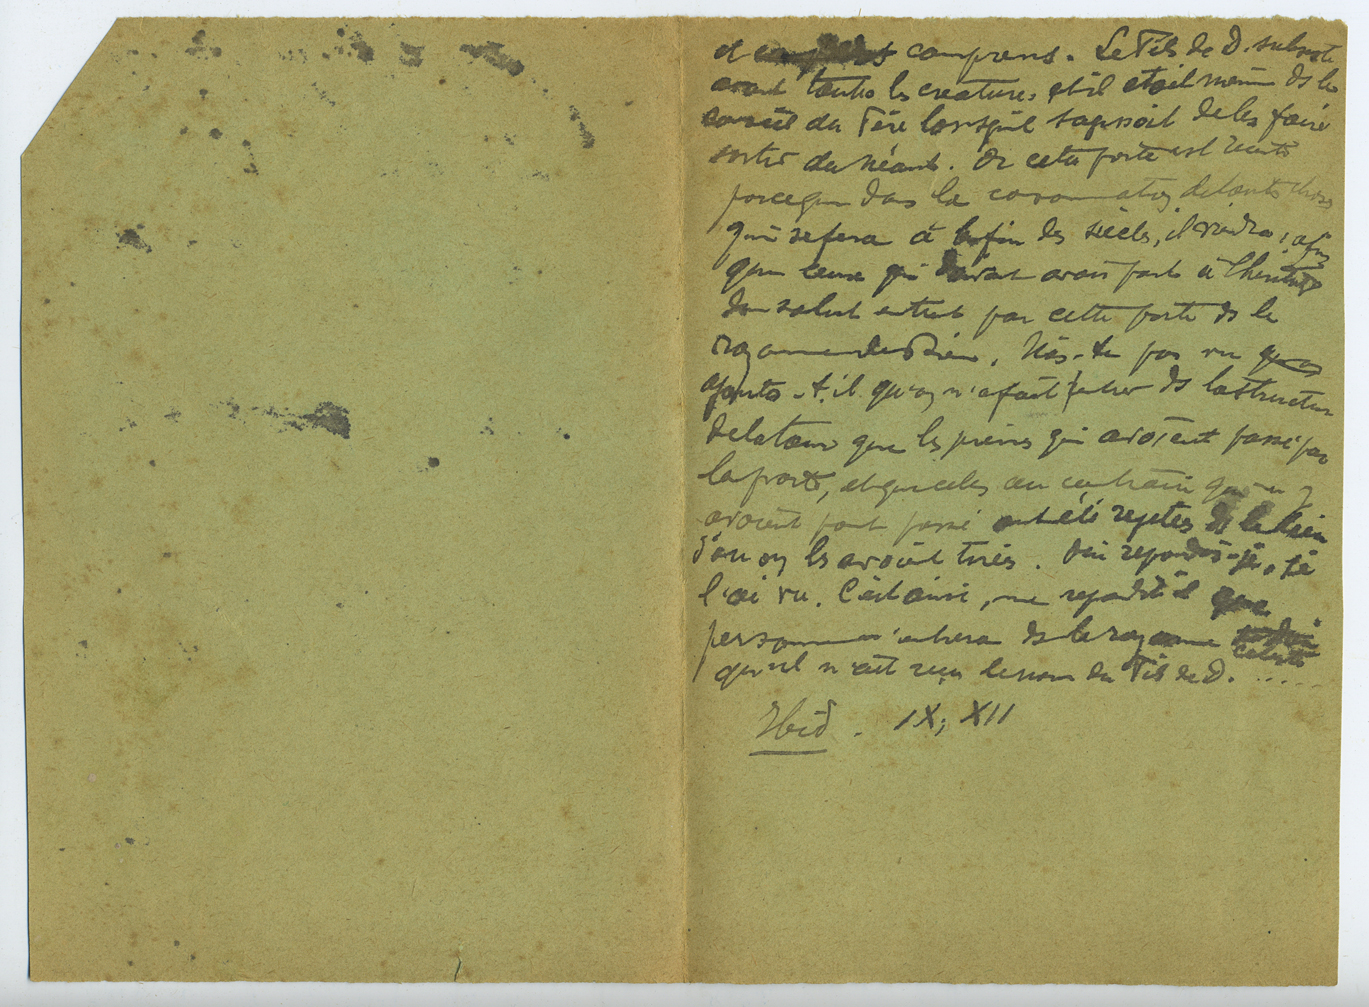 et comprens. Le Fils de D. subsiste
avant toutes les creatures, et il etoit même ds le
conseil du Père lorsqu'il s'agissoit de les faire
sortir du néant. Or cette porte est recente
parceque dans la consommation de toutes choses
qui se fera à la fin des siècles, il viendra, afin
que ceux qui doivent avoir part à l'heritage
du salut entrent par cette porte ds le
royaume de Dieu. N'as-tu pas vu
ajouta-t-il qu'on n'a fait entrer ds la structure
de la tour que les pierres qui avoient passé par
la porte, et que celles au contraire qui n'y
avoient point passé ont été rejetées ds le lieu
d'ou on les avoient tirés. Oui repondis-je, je
l'ai vu. C'est ainsi, me repondit il que
personne n'entrera ds le royaume celeste
qu'il n'ait reçu le nom du Fils de D. .....
Ibid. IX, XII